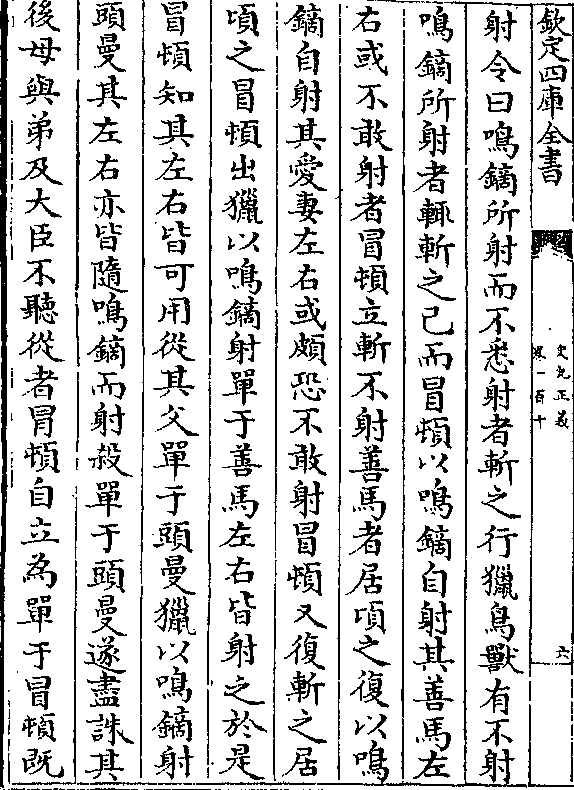 欽定四庫全書
史記正義
卷一百十
六
射令曰鳴鏑所射而不悉射者斬之行獵鳥獸有不射
鳴鏑所射者輒斬之已而冒頓以鳴鏑自射其善馬左
右或不敢射者冒頓立斬不射善馬者居頃之復以鳴
鏑自射其愛妻左右或頗恐不敢射冒頓又復斬之居
頃之冒頓出獵以鳴鏑射單于善馬左右皆射之於是
冒頓知其左右皆可用從其父單于頭曼獵以鳴鏑射
頭曼其左右亦皆隨鳴鏑而射殺單于頭曼遂盡誅其
後母與弟及大臣不聽從者冒頓自立為單于冒頓既